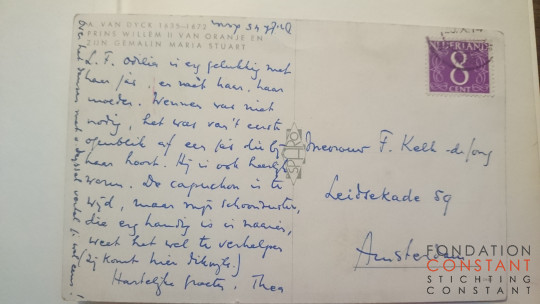 A. VAN DYCK 1599-1672
PRINS WILLEM II VAN ORANJE EN
ZIJN GEMALIN MARIA STUART
L. F. Odilia is erg gelukkig met
haar jas. en met haar haar
moeder. Wennen was niet
nodig, het was van 't eerste
ogenblik af een jas die bij
haar hoort. Hij is ook heerlijk
warm. De capuchon is te
wijd, maar mijn schoonzuster,
die erg handig is in naaien,
weet het wel te verhelpen
(zij komt hier dikwijls.)
Hartelijke groeten, Thea
Over het
NEDERLAND
8
CENT
Mevrouw F. Kell-de Jong
Leidsekade 59
Amsterdam
FONDATION
CONSTANT
STICHTING
CONSTANT